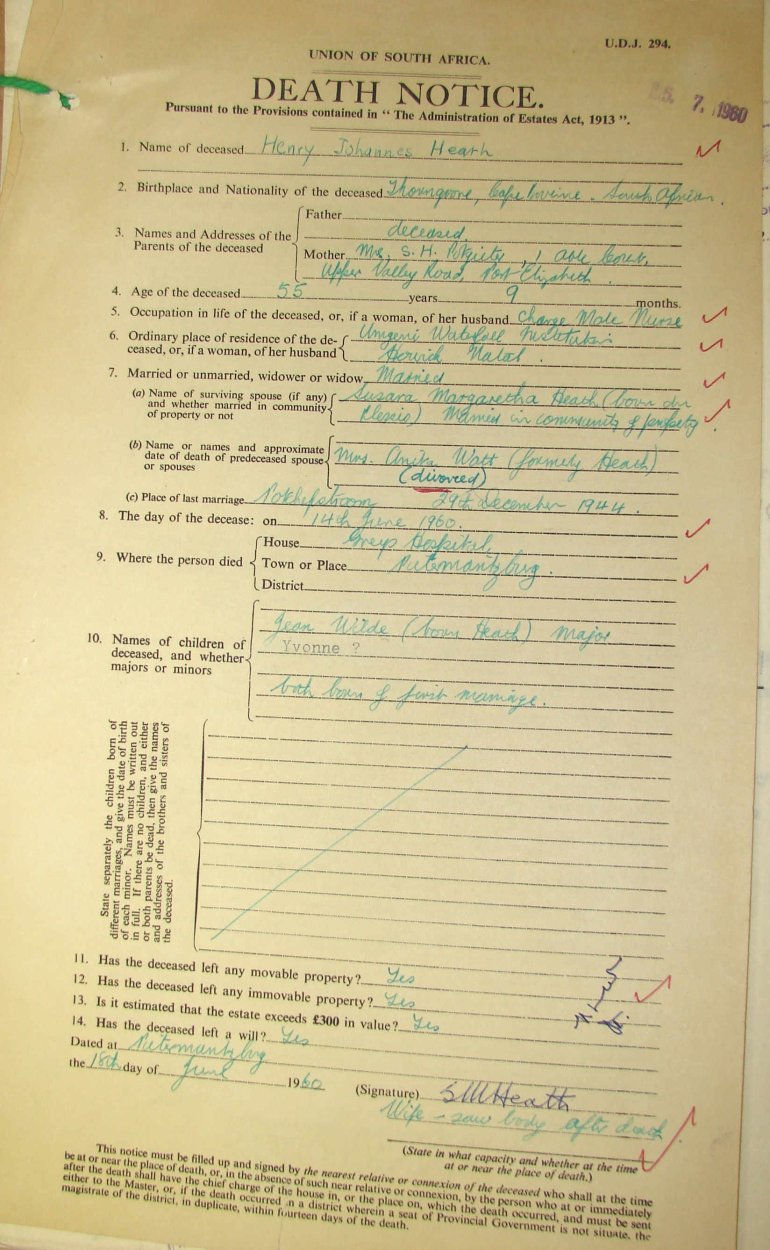 U.D.J. 294.
UNION OF SOUTH AFRICA.
DEATH NOTICE.
7. 1960
Pursuant to the Provisions contained in "The Administration of Estates Act, 1913".
1. Name of deceased Henry Johannes Heath
2. Birthplace and Nationality of the deceased Thorngrove, Cape Province. South African.
3. Names and Addresses of the Parents of the deceased
Father
deceased
Mother Mrs. S. H. Potgieter, 1 Court,
Upper Valley Road, Port Elizabeth.
4. Age of the deceased 55 years 9 months.
5. Occupation in life of the deceased, or, if a woman, of her husband Charge Male Nurse
6. Ordinary place of residence of the de- Umgeni Waterfall Institution
ceased, or, if a woman, of her husband Howick Natal.
7. Married or unmarried, widower or widow Married
(a) Name of surviving spouse (if any) Susara Margaretha Heath (born du
and whether married in community Plessis) Married in community of property.
of property or not
(b) Name or names and approximate
date of death of predeceased spouse Mrs. Anita Watt (formerly Heath)
or spouses (divorced)
(c) Place of last marriage Potchefstroom 29th December 1944.
8. The day of the decease: on 14th June 1960.
9. Where the person died
House Greys Hospital
Town or Place Pietermaritzburg.
District
10. Names of children of
deceased, and whether
majors or minors
Jean Wilde (born Heath) Major
Yvonne ?
both born of first marriage.
State separately the children born of
different marriages, and give the date of birth
of each minor. Names must be written out
in full. If there are no children, and either
or both parents be dead, then give the names
and addresses of the brothers and sisters of
the deceased.
11. Has the deceased left any movable property? Yes
12. Has the deceased left any immovable property? Yes
13. Is it estimated that the estate exceeds £300 in value? Yes
14. Has the deceased left a will? Yes
Dated at Pietermaritzburg
the 18th day of June 1960
(Signature) SMHeath
Wife - saw body after death
(State in what capacity and whether at the time
at or near the place of death.)
This notice must be filled up and signed by the nearest relative or connexion of the deceased who shall at the time
be at or near the place of death, or, in the absence of such near relative or connexion, by the person who at or immediately
after the death shall have the chief charge of the house in, or the place on, which the death occurred, and must be sent
either to the Master, or, if the death occurred in a district wherein a seat of Provincial Government is not situate, the
magistrate of the district, in duplicate, within fourteen days of the death.